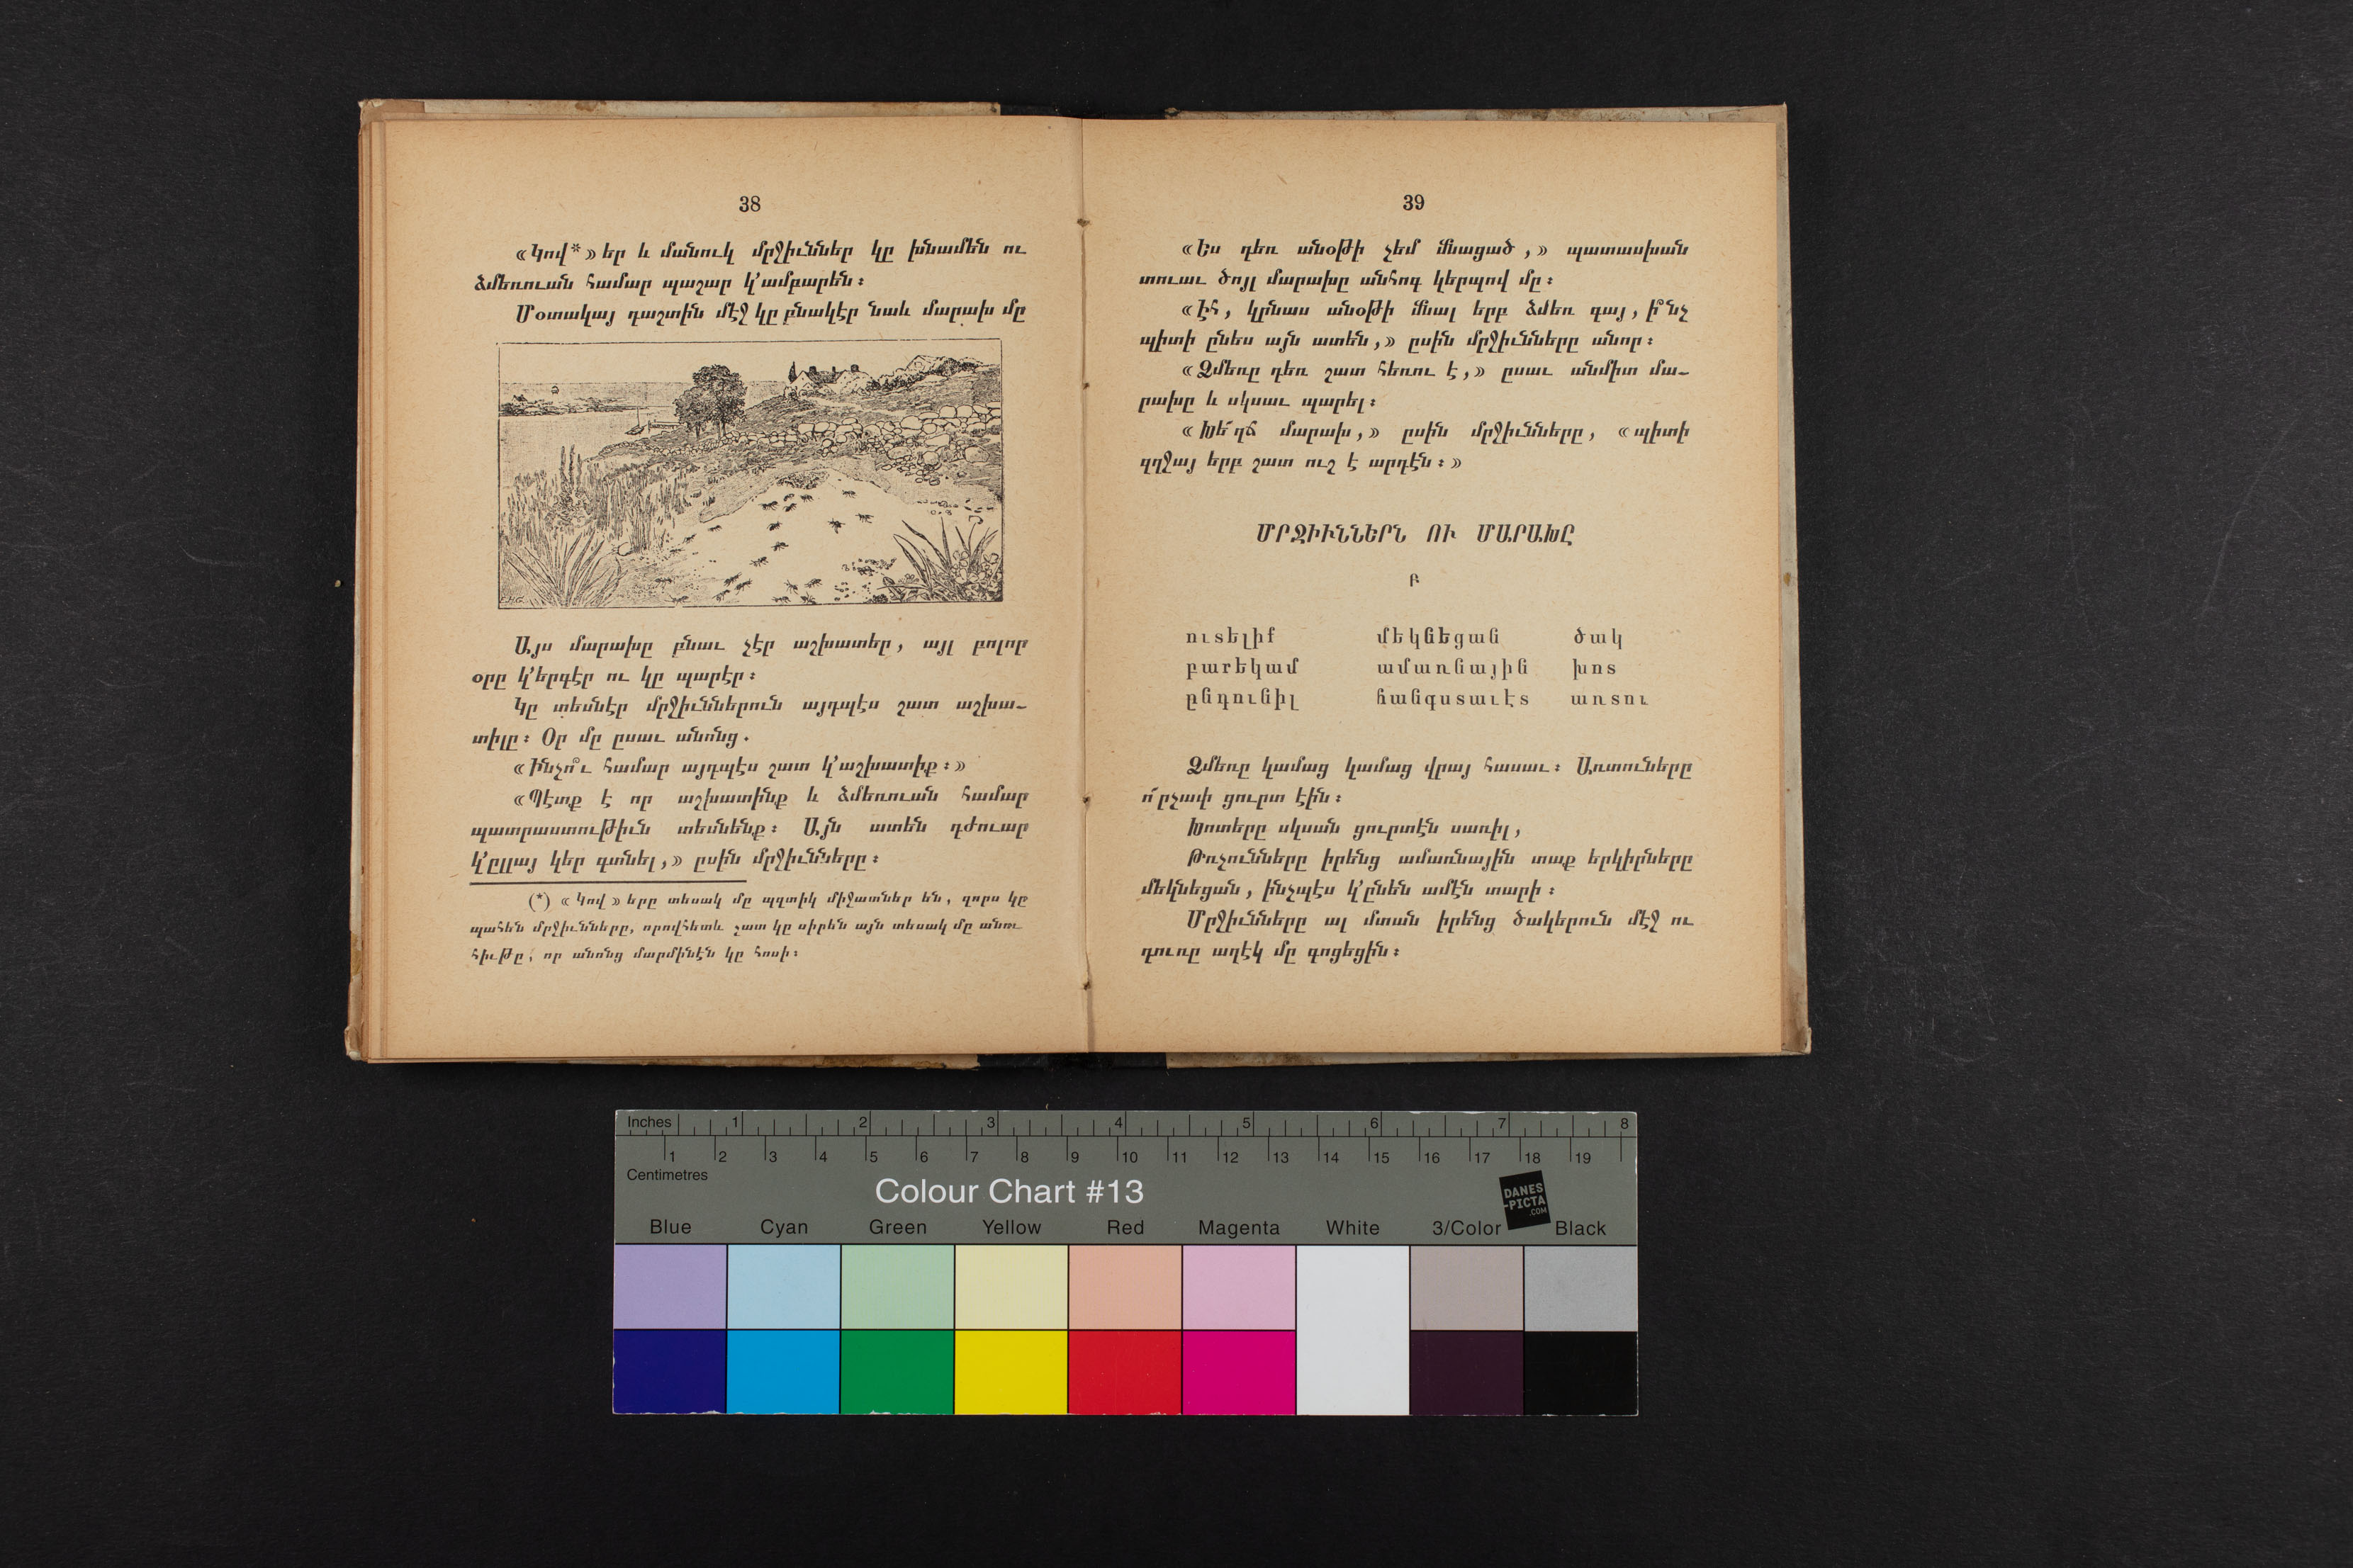 38
«Կով*»եր և մանուկ մրջիւններ կը խնամեն ու
ձմեռուան համար պաշար կ՚ամբարեն։
Մօտակայ դաշտին մէջ կը բնակէր նաև մարախ մը
E.H.G.
Այս մարախը բնաւ չէր աշխատեր, այլ բոլոր
օրը կ՚երգէր ու կը պարէր։
Կը տեսնէր մրջիւններուն այդպէս շատ աշխա-
տիլը։ Օր մը ըսաւ անոնց.
«Ինչո՞ւ համար այդպէս շատ կ՚աշխատիք։»
«Պէտք է որ աշխատինք և ձմեռուան համար
պատրաստութիւն տեսնենք։ Այն ատեն դժուար
կ՚ըլլայ կեր գտնել,» ըսին մրջիւնները։
(*) «Կով»երը տեսակ մը պզտիկ միջատներ են, զորս կը
պահեն մրջիւնները, որովհետև շատ կը սիրեն այն տեսակ մը անու
հիւթը, որ անոնց մարմինէն կը հոսի։
39
«Ես դեռ անօթի չեմ մնացած,» պատասխան
տուաւ ծոյլ մարախը անհոգ կերպով մը։
«Էհ, կրնաս անօթի մնալ երբ ձմեռ գայ, ի՞նչ
պիտի ընես այն ատեն,» ըսին մրջիւնները անոր։
«Ձմեռը դեռ շատ հեռու է,» ըսաւ անմիտ մա-
րախը և սկսաւ պարել։
«Խե՜ղճ մարախ,» ըսին մրջիւնները, «պիտի
զղջայ երբ շատ ուշ է արդէն։»
ՄՐՋԻՒՆՆԵՐՆ ՈՒ ՄԱՐԱԽԸ
Բ
ուտելիք մեկնեցան ծակ
բարեկամ ամառնային խոտ
ընդունիլ հանգստաւէտ առտու
Ձմեռը կամաց կամաց վրայ հասաւ։ Առտուները
ո՜րչափ ցուրտ էին։
Խոտերը սկսան ցուրտէն սառիլ,
Թռչունները իրենց ամառնային տաք երկիրները
մեկնեցան, ինչպէս կ՚ընեն ամէն տարի։
Մրջիւնները ալ մտան իրենց ծակերուն մէջ ու
դուռը աղէկ մը գոցեցին։
Inches 1 2 3 4 5 6 7 8
1 2 3 4 5 6 7 8 9 10 11 12 13 14 15 16 17 18 19
Centimetres
Colour Chart #13
DANES
-PICTA
.COM
Blue Cyan Green Yellow Red Magenta White 3/Color Black